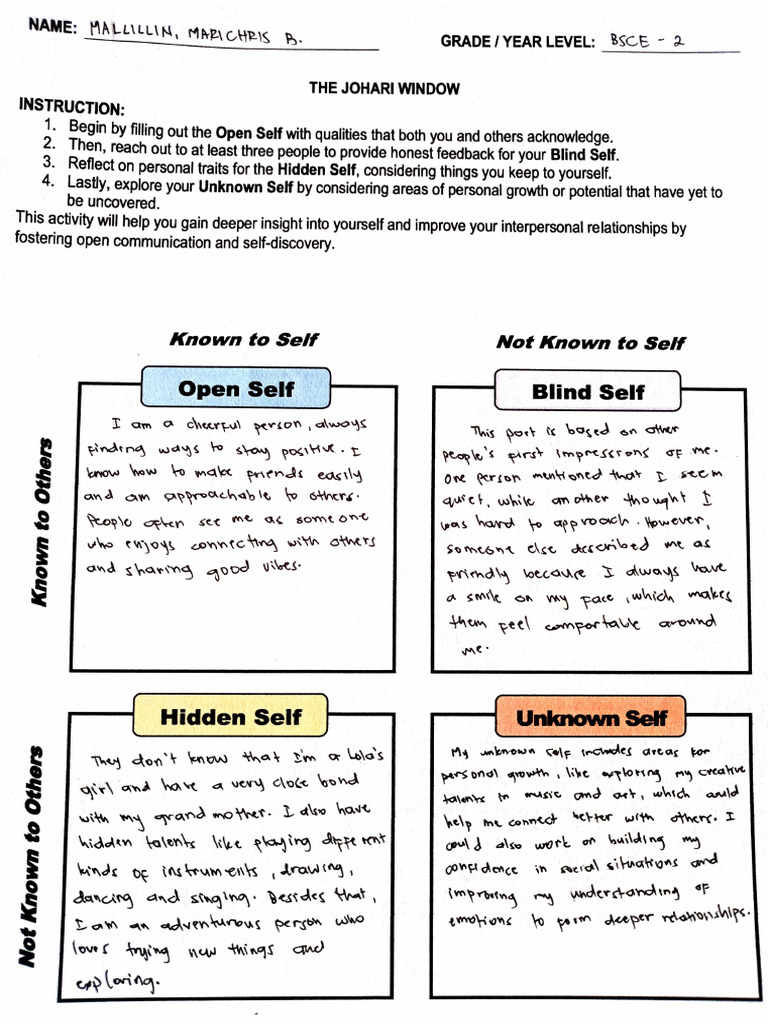 NAME: MALLILLIN, MARICHRIS B.
GRADE / YEAR LEVEL: BSCE - 2
THE JOHARI WINDOW
INSTRUCTION:
1. Begin by filling out the Open Self with qualities that both you and others acknowledge.
2. Then, reach out to at least three people to provide honest feedback for your Blind Self.
3. Reflect on personal traits for the Hidden Self, considering things you keep to yourself.
4. Lastly, explore your Unknown Self by considering areas of personal growth or potential that have yet to
be uncovered.
This activity will help you gain deeper insight into yourself and improve your interpersonal relationships by
fostering open communication and self-discovery.
Known to Self
Not Known to Self
Known to Others
Open Self
I am a cheerful person, always
finding ways to stay positive. I
know how to make friends easily
and am approachable to others.
People often see me as someone
who enjoys connecting with others
and sharing good vibes.
Blind Self
This part is based on other
people's first impressions of me.
One person mentioned that I seem
quiet, while another thought I
was hard to approach. However,
someone else described me as
friendly because I always have
a smile on my face, which makes
them feel comfortable around
me.
Not Known to Others
Hidden Self
They don't know that I'm a Lola's
girl and have a very close bond
with my grand mother. I also have
hidden talents like playing different
kinds of instruments, drawing,
dancing and singing. Besides that,
I am an adventurous person who
loves trying new things and
exploring.
Unknown Self
My unknown self includes areas for
personal growth, like exploring my creative
talents in music and art, which could
help me connect better with others. I
could also work on building my
confidence in social situations and
improving my understanding of
emotions to form deeper relationships.